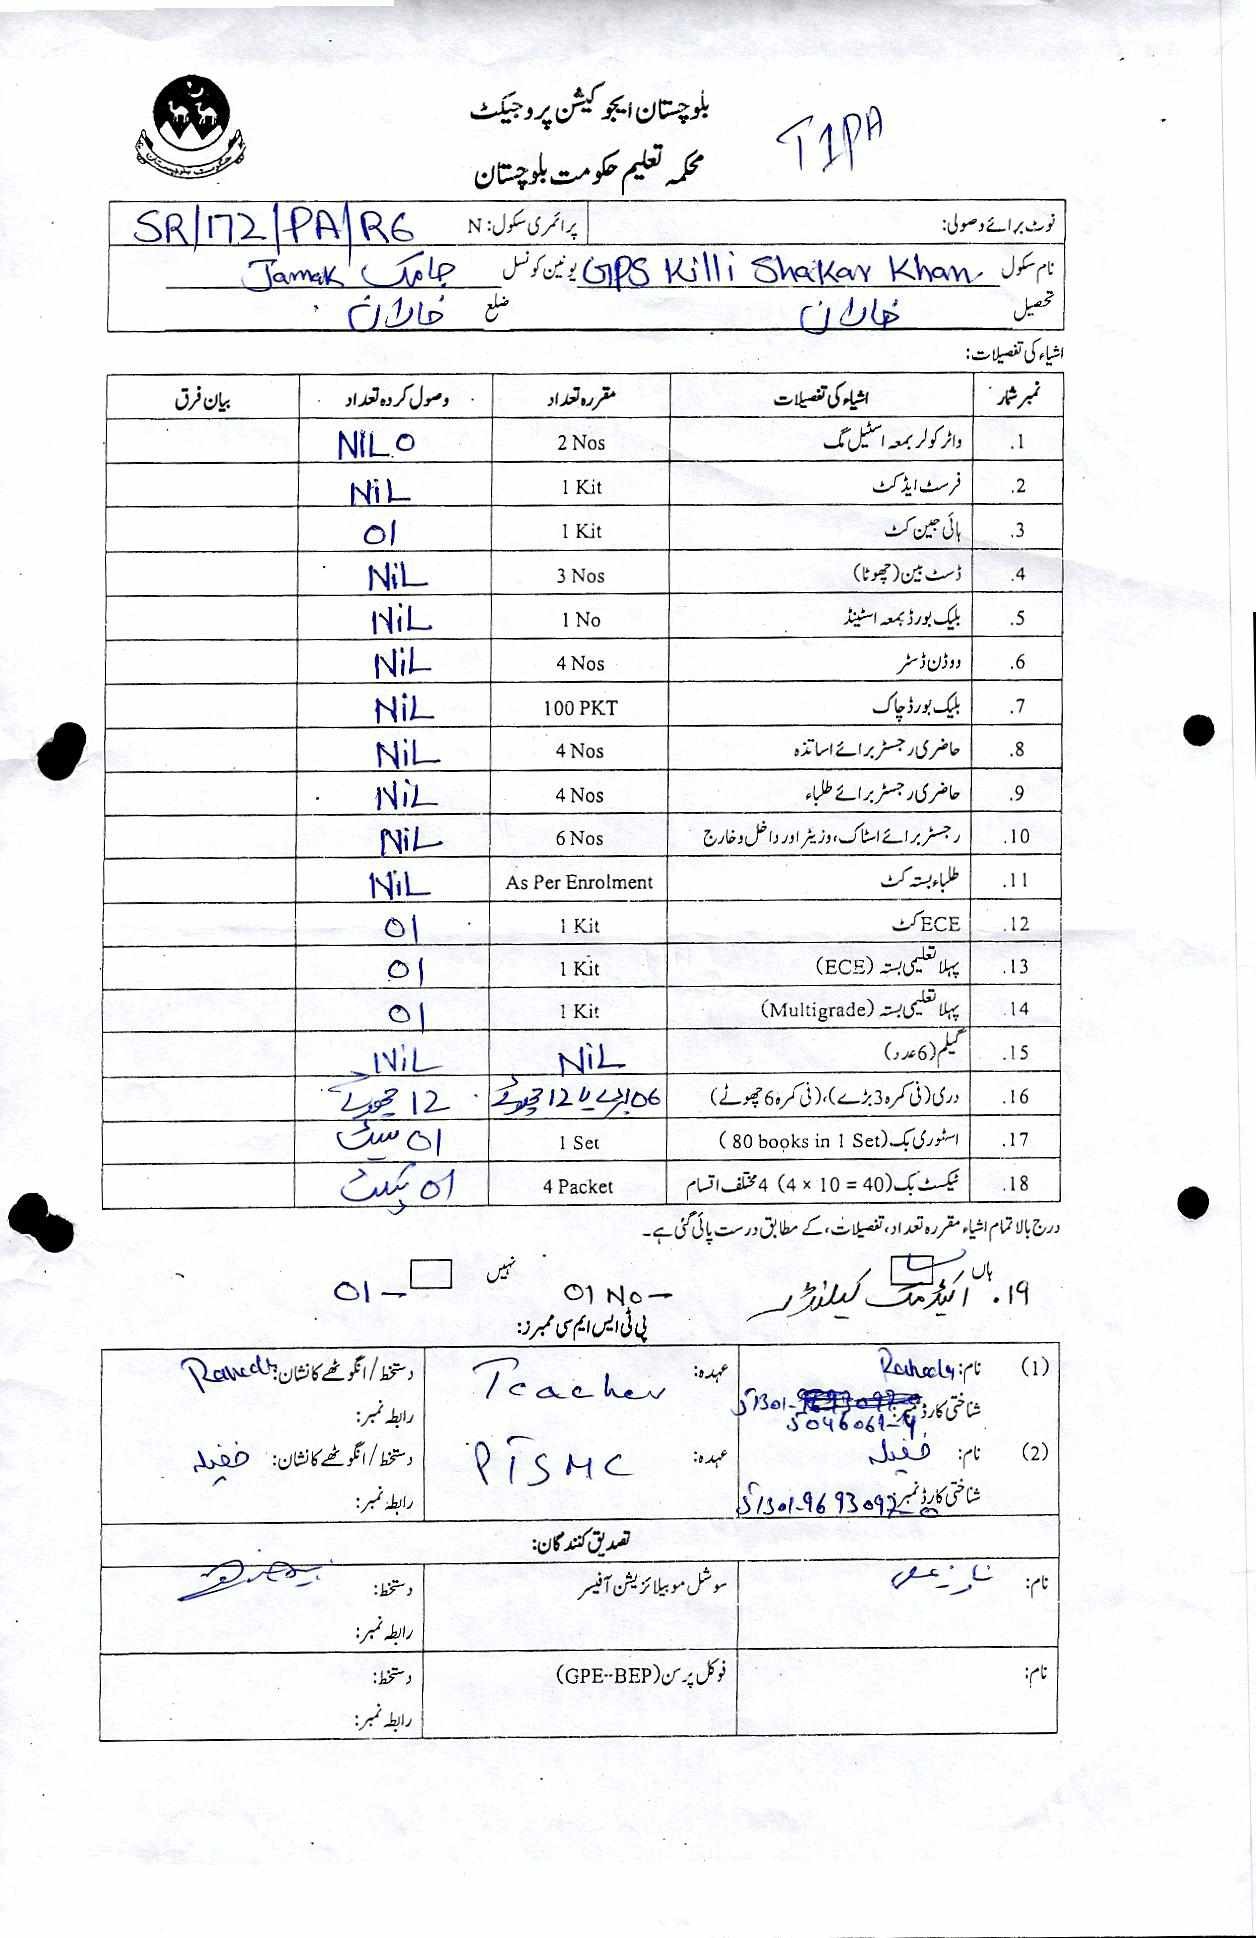 بلوچستان ایجوکیشن پروجیکٹ
T1PA
محکمہ تعلیم حکومت بلوچستان
نوٹ برائے وصولی: پرائمری سکول: N SR/172/PA/R6
نام سکول GPS Killi Shakar Khan یونین کونسل جامک Jamak
تحصیل خاران ضلع خاران
اشیاء کی تفصیلات:
نمبر شمار اشیاء کی تفصیلات مقررہ تعداد وصول کردہ تعداد بیان فرق
.1 واٹر کولر بمعہ اسٹیل مگ 2 Nos NIL 0
.2 فرسٹ ایڈ کٹ 1 Kit NiL
.3 ہائی جین کٹ 1 Kit 01
.4 ڈسٹ بین (چھوٹا) 3 Nos NiL
.5 بلیک بورڈ بمعہ اسٹینڈ 1 No NiL
.6 ووڈن ڈسٹر 4 Nos NiL
.7 بلیک بورڈ چاک 100 PKT NiL
.8 حاضری رجسٹر برائے اساتذہ 4 Nos NiL
.9 حاضری رجسٹر برائے طلباء 4 Nos NiL
.10 رجسٹر برائے اسٹاک، وزیٹر اور داخل و خارج 6 Nos NiL
.11 طلباء بستہ کٹ As Per Enrolment NiL
.12 ECE کٹ 1 Kit 01
.13 پہلا تعلیمی بستہ (ECE) 1 Kit 01
.14 پہلا تعلیمی بستہ (Multigrade) 1 Kit 01
.15 گیلم (6 عدد) NiL NiL
.16 دری (فی کمرہ 3 بڑے)، (فی کمرہ 6 چھوٹے) 06 بڑے یا 12 چھوٹے 12 چھوٹے
.17 اسٹوری بک (80 books in 1 Set) 1 Set 01 سیٹ
.18 ٹیکسٹ بک (4 × 10 = 40) 4 مختلف اقسام 4 Packet 01 پیکٹ
درج بالا تمام اشیاء مقررہ تعداد، تفصیلات، کے مطابق درست پائی گئی ہے۔
ہاں نہیں
۱۹. اکیڈمک کیلنڈر 01 No 01
پی ٹی ایس ایم سی ممبرز:
(1) نام: عہدہ: Teacher دستخط/انگوٹھے کا نشان:
شناختی کارڈ نمبر: 51301-5046061-4 رابطہ نمبر:
(2) نام: عہدہ: PTSMC دستخط/انگوٹھے کا نشان:
شناختی کارڈ نمبر: 51301-9693097-0 رابطہ نمبر:
تصدیق کنندگان:
نام: سوشل موبیلائزیشن آفیسر دستخط:
رابطہ نمبر:
نام: فوکل پرسن (GPE--BEP) دستخط:
رابطہ نمبر: